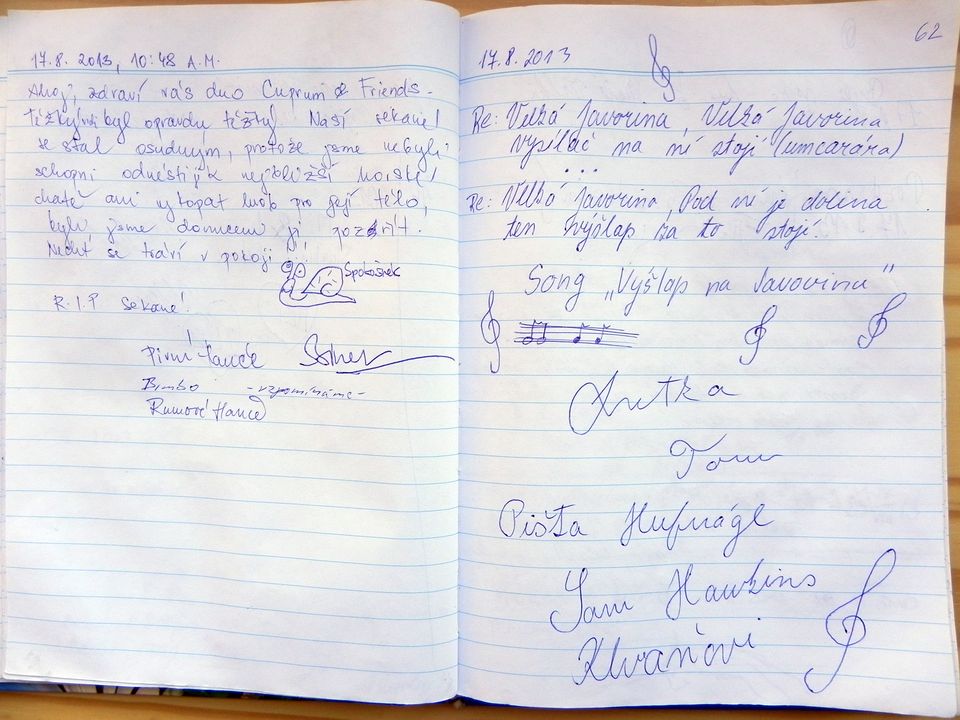 17.8. 2013, 10:48 A.M.
Ahoj, zdraví vás duo Cuprum & Friends.
byl opravdu těžký. Naší sekané
se stal osudným, protože jsme nebyli
schopni odnésti ji k nejbližší horské
chatě ani vykopat hrob pro její tělo,
byli jsme donuceni ji pozřít.
Nechť se tráví v pokoji
Spokošnek
R.I.P sekané!
Pivní tance
Bimbo -vzpomínáme-
Rumové tance
62
17.8.2013
Re: Velká Javorina, Velká Javorina
vysílač na ní stojí (umcarára)
...
Re: Velká Javorina, Pod ní je dolina
ten výšlap za to stojí.
Song „Výšlap na Javorinu"
Anetka
Tom
Pišta Hufnágl
Sam Hawkins
Klvaňovi